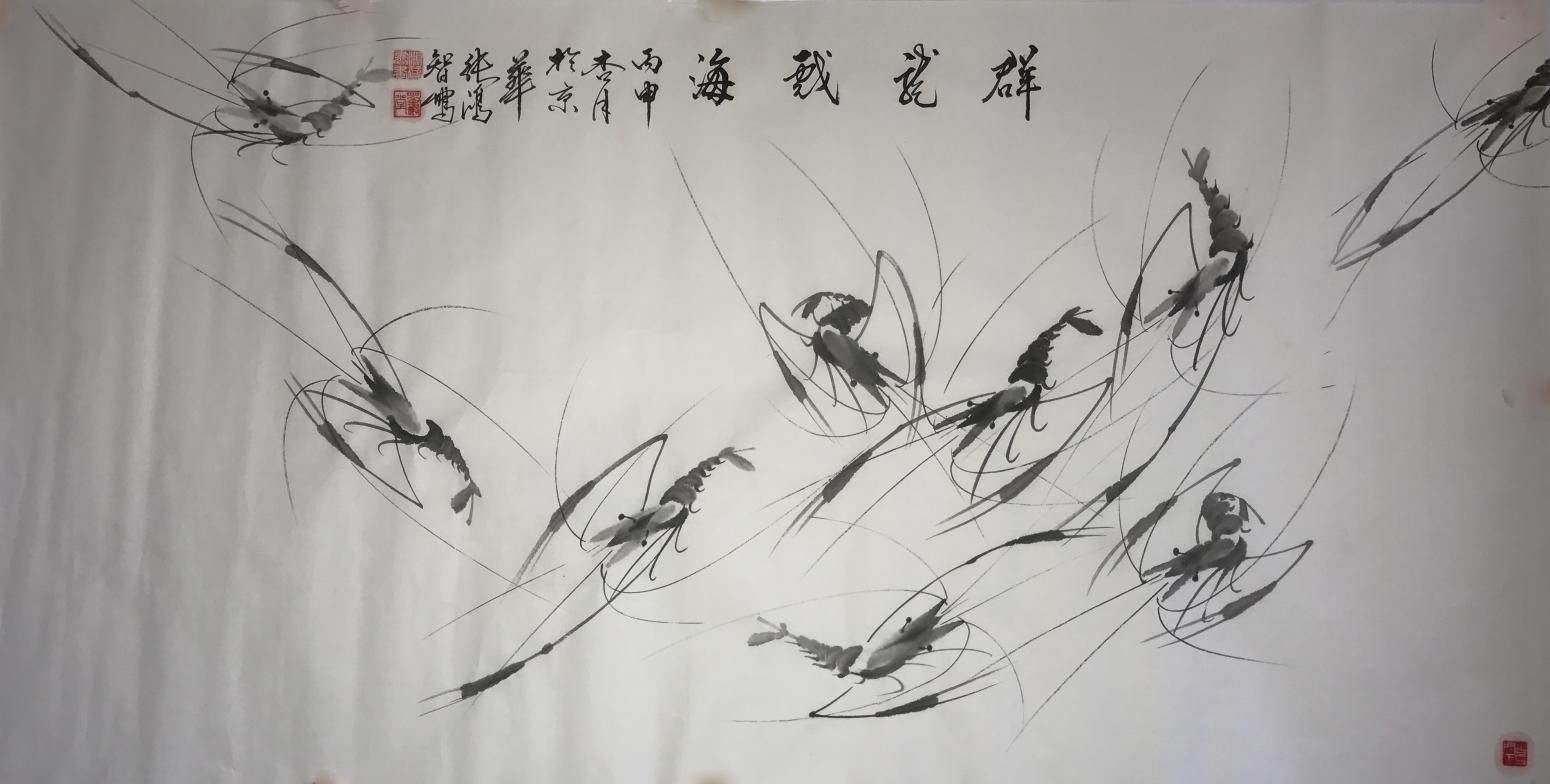 群龍戲海
丙申
杏月
於京
華
張鴻
智